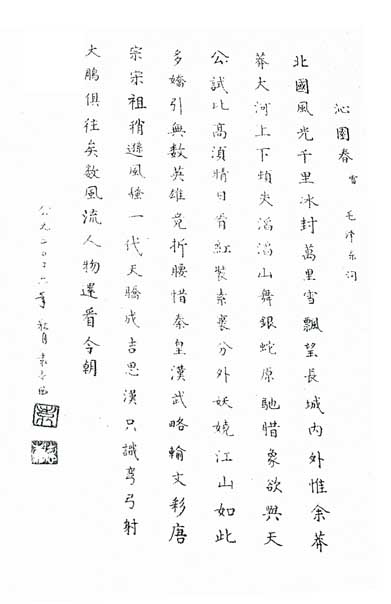 沁園春 雪 毛澤东词
北國風光千里冰封萬里雪飄望長城内外惟余莽
莽大河上下頓失滔滔山舞銀蛇原馳腊象欲與天
公試比高須晴日看紅裝素裹分外妖嬈江山如此
多嬌引無数英雄竞折腰惜秦皇漢武略輸文彩唐
宗宋祖稍遜風騷一代天驕成吉思漢只識彎弓射
大鵰俱往矣数風流人物還看今朝